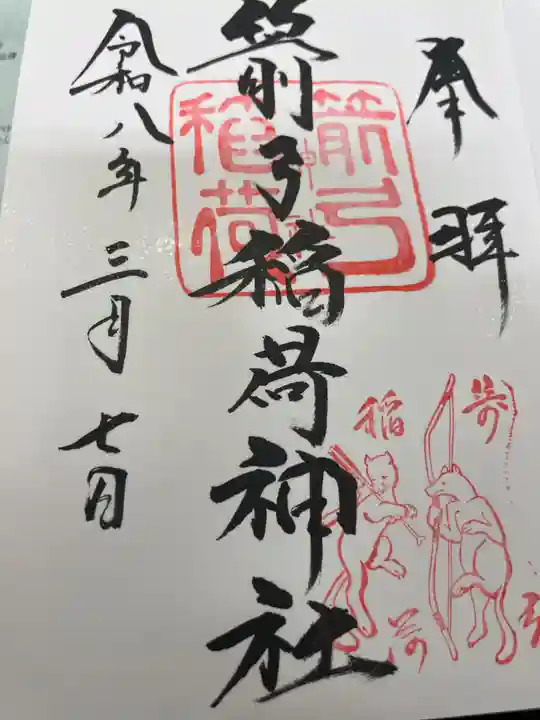 奉拝
箭弓稲荷神社
箭弓
稲荷
神社
令和八年三月七日
箭
弓
稲
荷